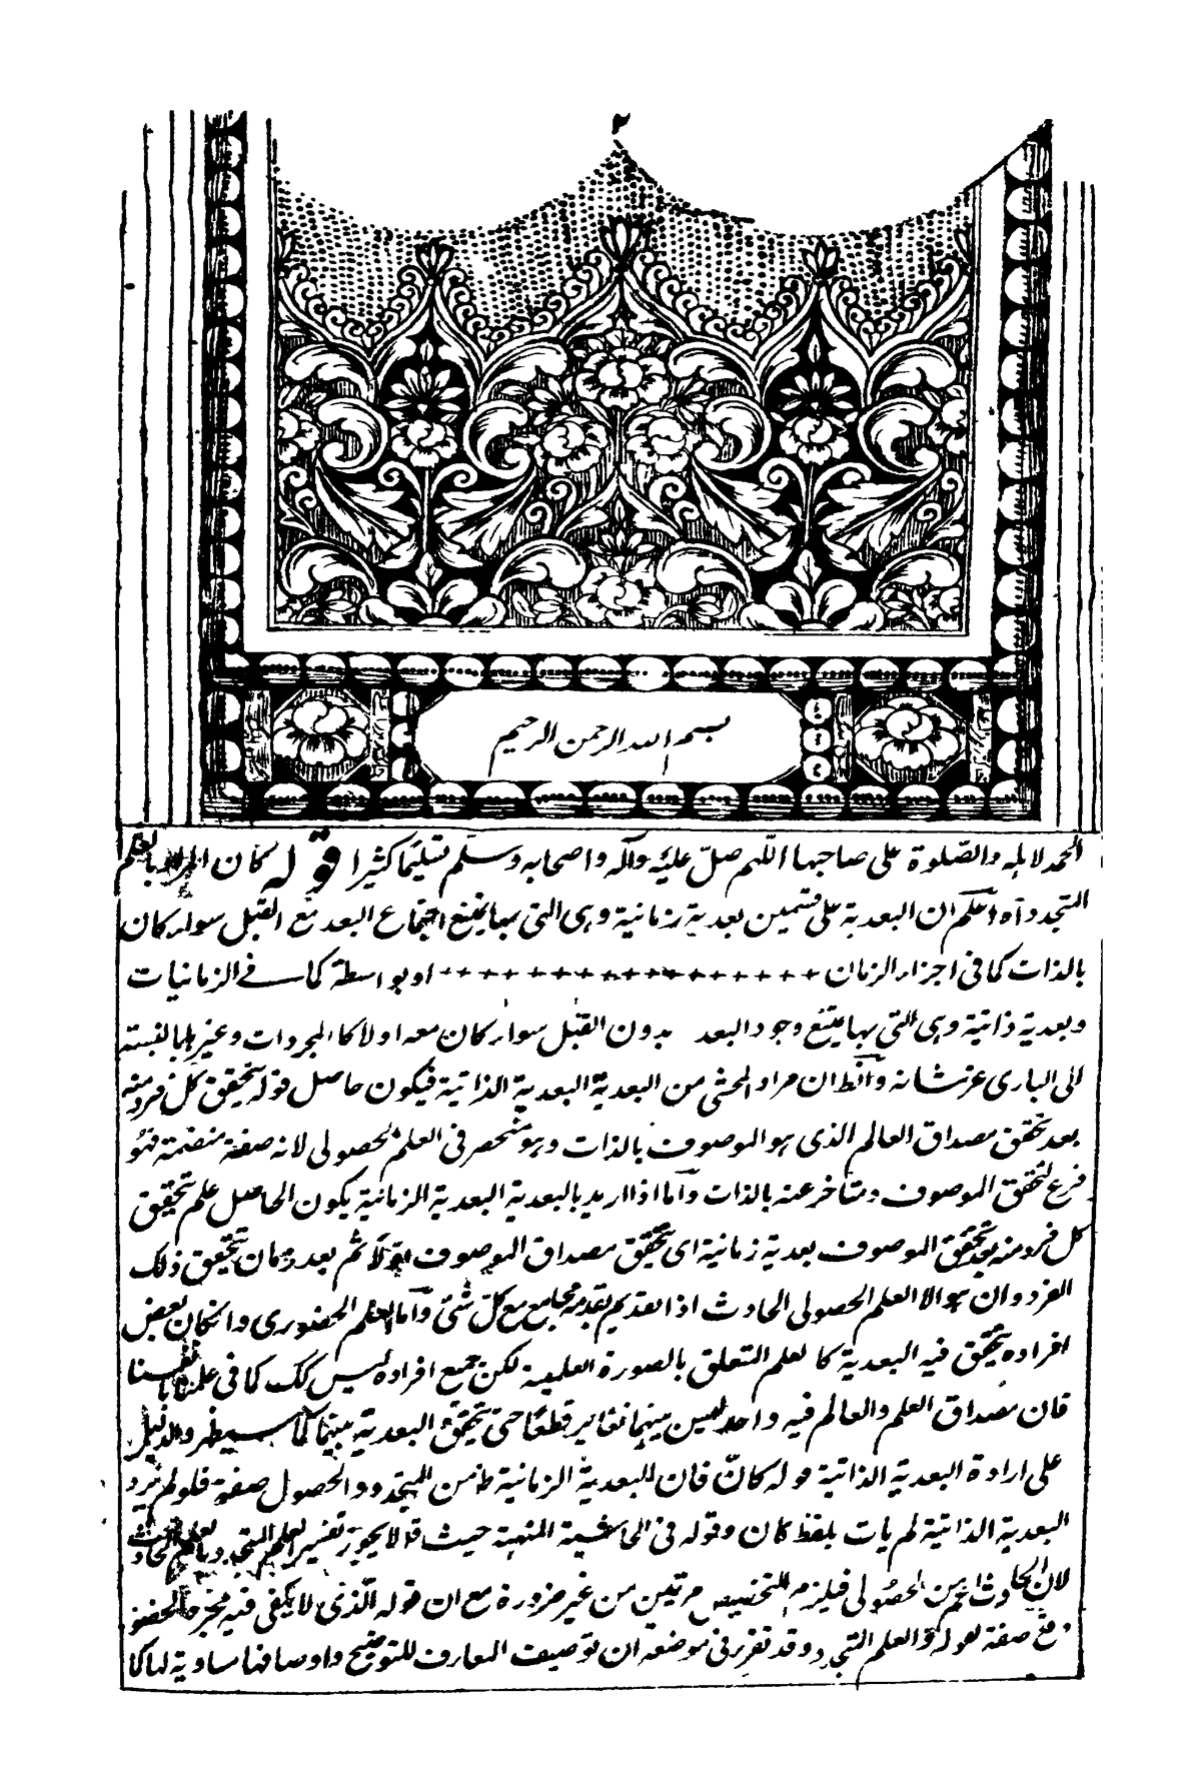 ٢
بسم الله الرحمن الرحيم
الحمد لاهله والصلوة على صاحبها اللهم صل عليه وآله واصحابه وسلم تسليما كثيرا قوله كان المراد بالعلم
المتجدد آه اعلم ان البعدية على قسمين بعدية زمانية وهى التى بها يمتنع اجتماع البعد مع القبل سواء كان
بالذات كما فى اجزاء الزمان او بواسطة كما فے الزمانيات
وبعدية ذاتية وهى التى بها يمتنع وجود البعد بدون القبل سواء كان معه اولا كالمجردات وغيرها بالنسبة
الى البارى عز شانه والظ ان مراد المحشى من البعدية البعدية الذاتية فيكون حاصل قوله يتحقق كل فرد منه
بعد تحقق مصداق العالم الذى هو الموصوف بالذات وهو منحصر فى العلم الحصولى لانه صفة منضمة فهو
فرع لتحقق الموصوف ومتاخر عنه بالذات وآما اذا اريد بالبعدية البعدية الزمانية يكون الحاصل علم يتحقق
كل فرد منه بعد تحقق الموصوف بعدية زمانية اى يتحقق مصداق الموصوف اولا ثم بعد زمان يتحقق ذلك
الفرد وان هو الا العلم الحصولى الحادث اذ القديم بقدمه مجامع مع كل شئ وآما العلم الحضورى وان كان بعض
افراده يتحقق فيه البعدية كالعلم المتعلق بالصورة العلمية لكن جميع افراده ليس كك كما فى علمنا بانفسنا
فان مصداق العلم والعالم فيه واحد ليس بينهما تغاير قطعا حتى يتحقق البعدية بينهما كما سيظهر والدليل
على ارادة البعدية الذاتية قوله كان فان البعدية الزمانية من المتجدد والحصول صفة فلو لم يرد
البعدية الذاتية لم يات بلفظ كان وقوله فى الحاشية المنهية حيث قال لا يجوز تفسير العلم المتجدد بالعلم الحادث
لان الحادث اعم من الحصولى فيلزم التخصيص مرتين من غير ضرورة مع ان قوله الذى لا يكفى فيه مجرد الحضور
صفة لقوله والعلم المتجدد وقد تقرر فى موضعه ان توصيف المعارف للتوضيح واوصافها مساوية لها كما